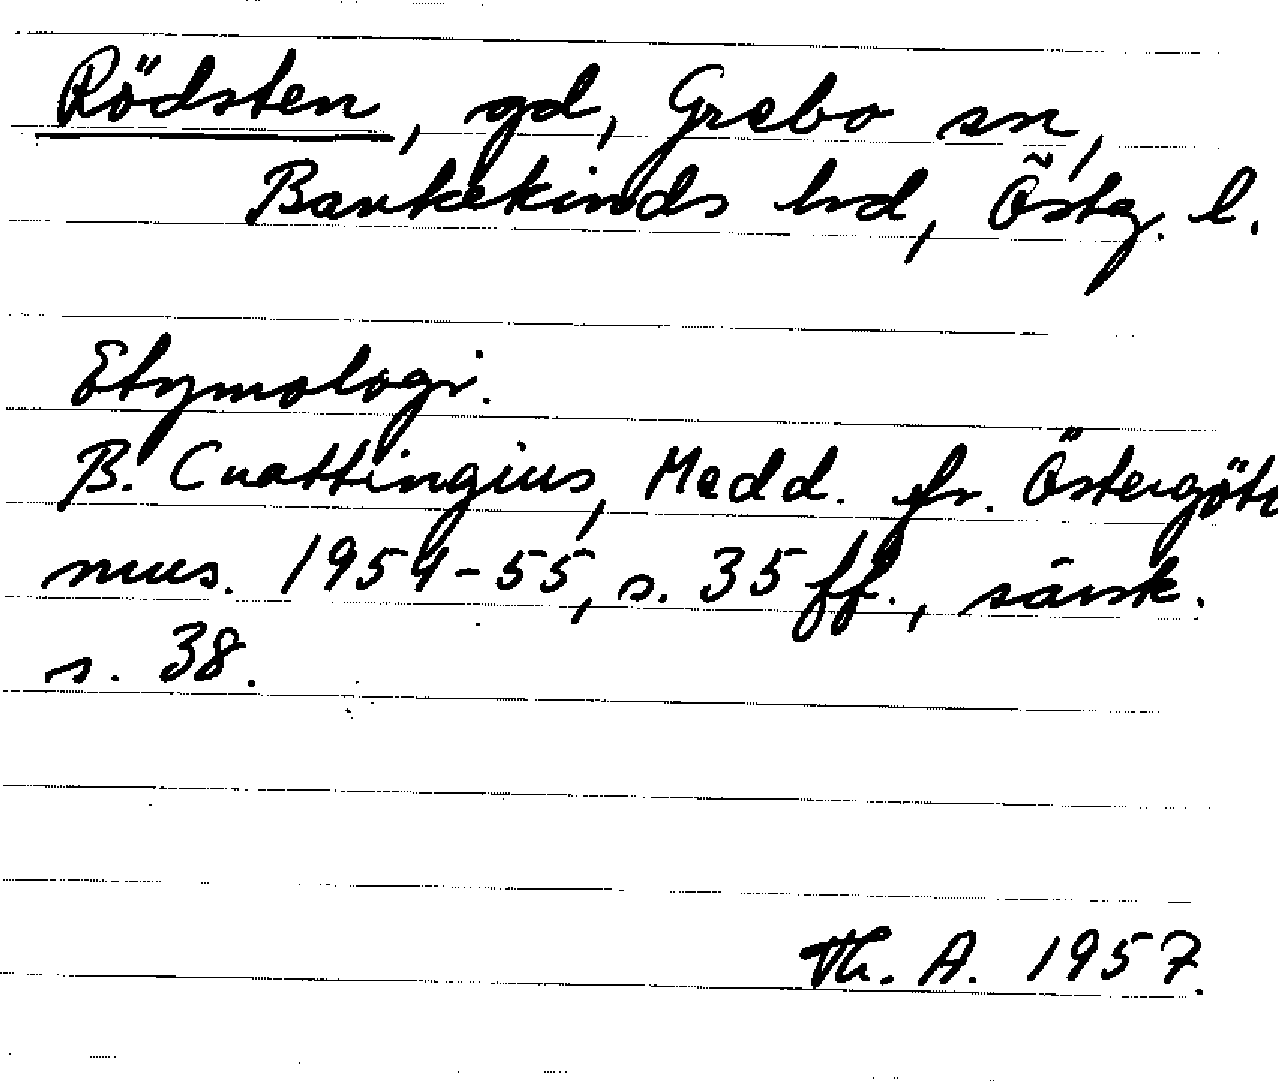 Rödsten, gd, Grebo sn,
Bankekinds hd, Östg. l.
Etymologi.
B. Cnattingius, Medd. fr. Östergötl
mus. 1954-55, s. 35 ff., särsk.
s. 38.
Th. A. 1957.